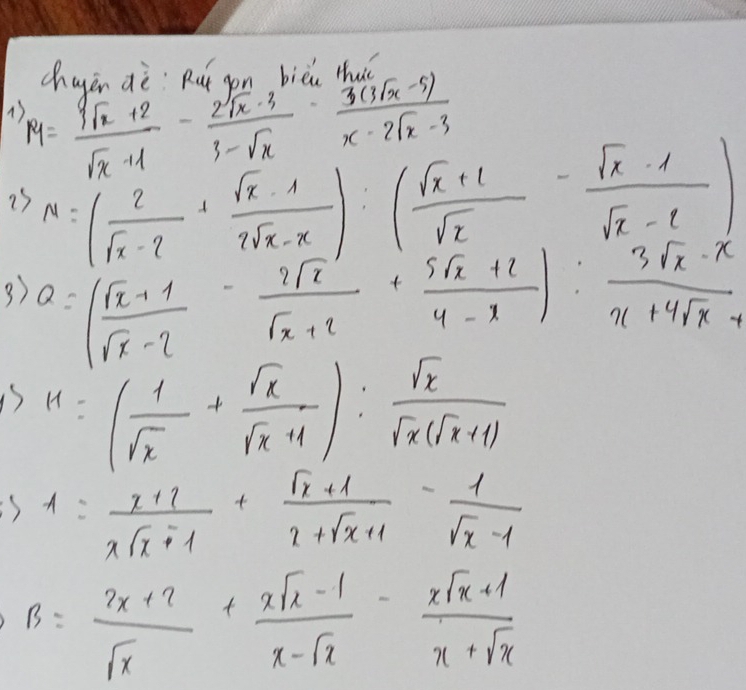 Chuyên đề: Rút gọn biểu thức
1) M = (3√x + 2)/(√x + 1) - (2√x - 3)/(3 - √x) - 3(3√x - 5)/(x - 2√x - 3)
2) N = (2/(√x - 2) + (√x - 1)/(2√x - x)) : ((√x + 2)/√x - (√x - 1)/(√x - 2))
3) Q = ((√x + 1)/(√x - 2) - 2√x/(√x + 2) + (5√x + 2)/(4 - x)) : (3√x - x)/(x + 4√x +
) H = (1/√x + √x/(√x + 1)) : √x/(√x(√x + 1))
) A = (x + 2)/(x√x - 1) + (√x + 1)/(x + √x + 1) - 1/(√x - 1)
) B = (2x + 2)/√x + (x√x - 1)/(x - √x) - (x√x + 1)/(x + √x)